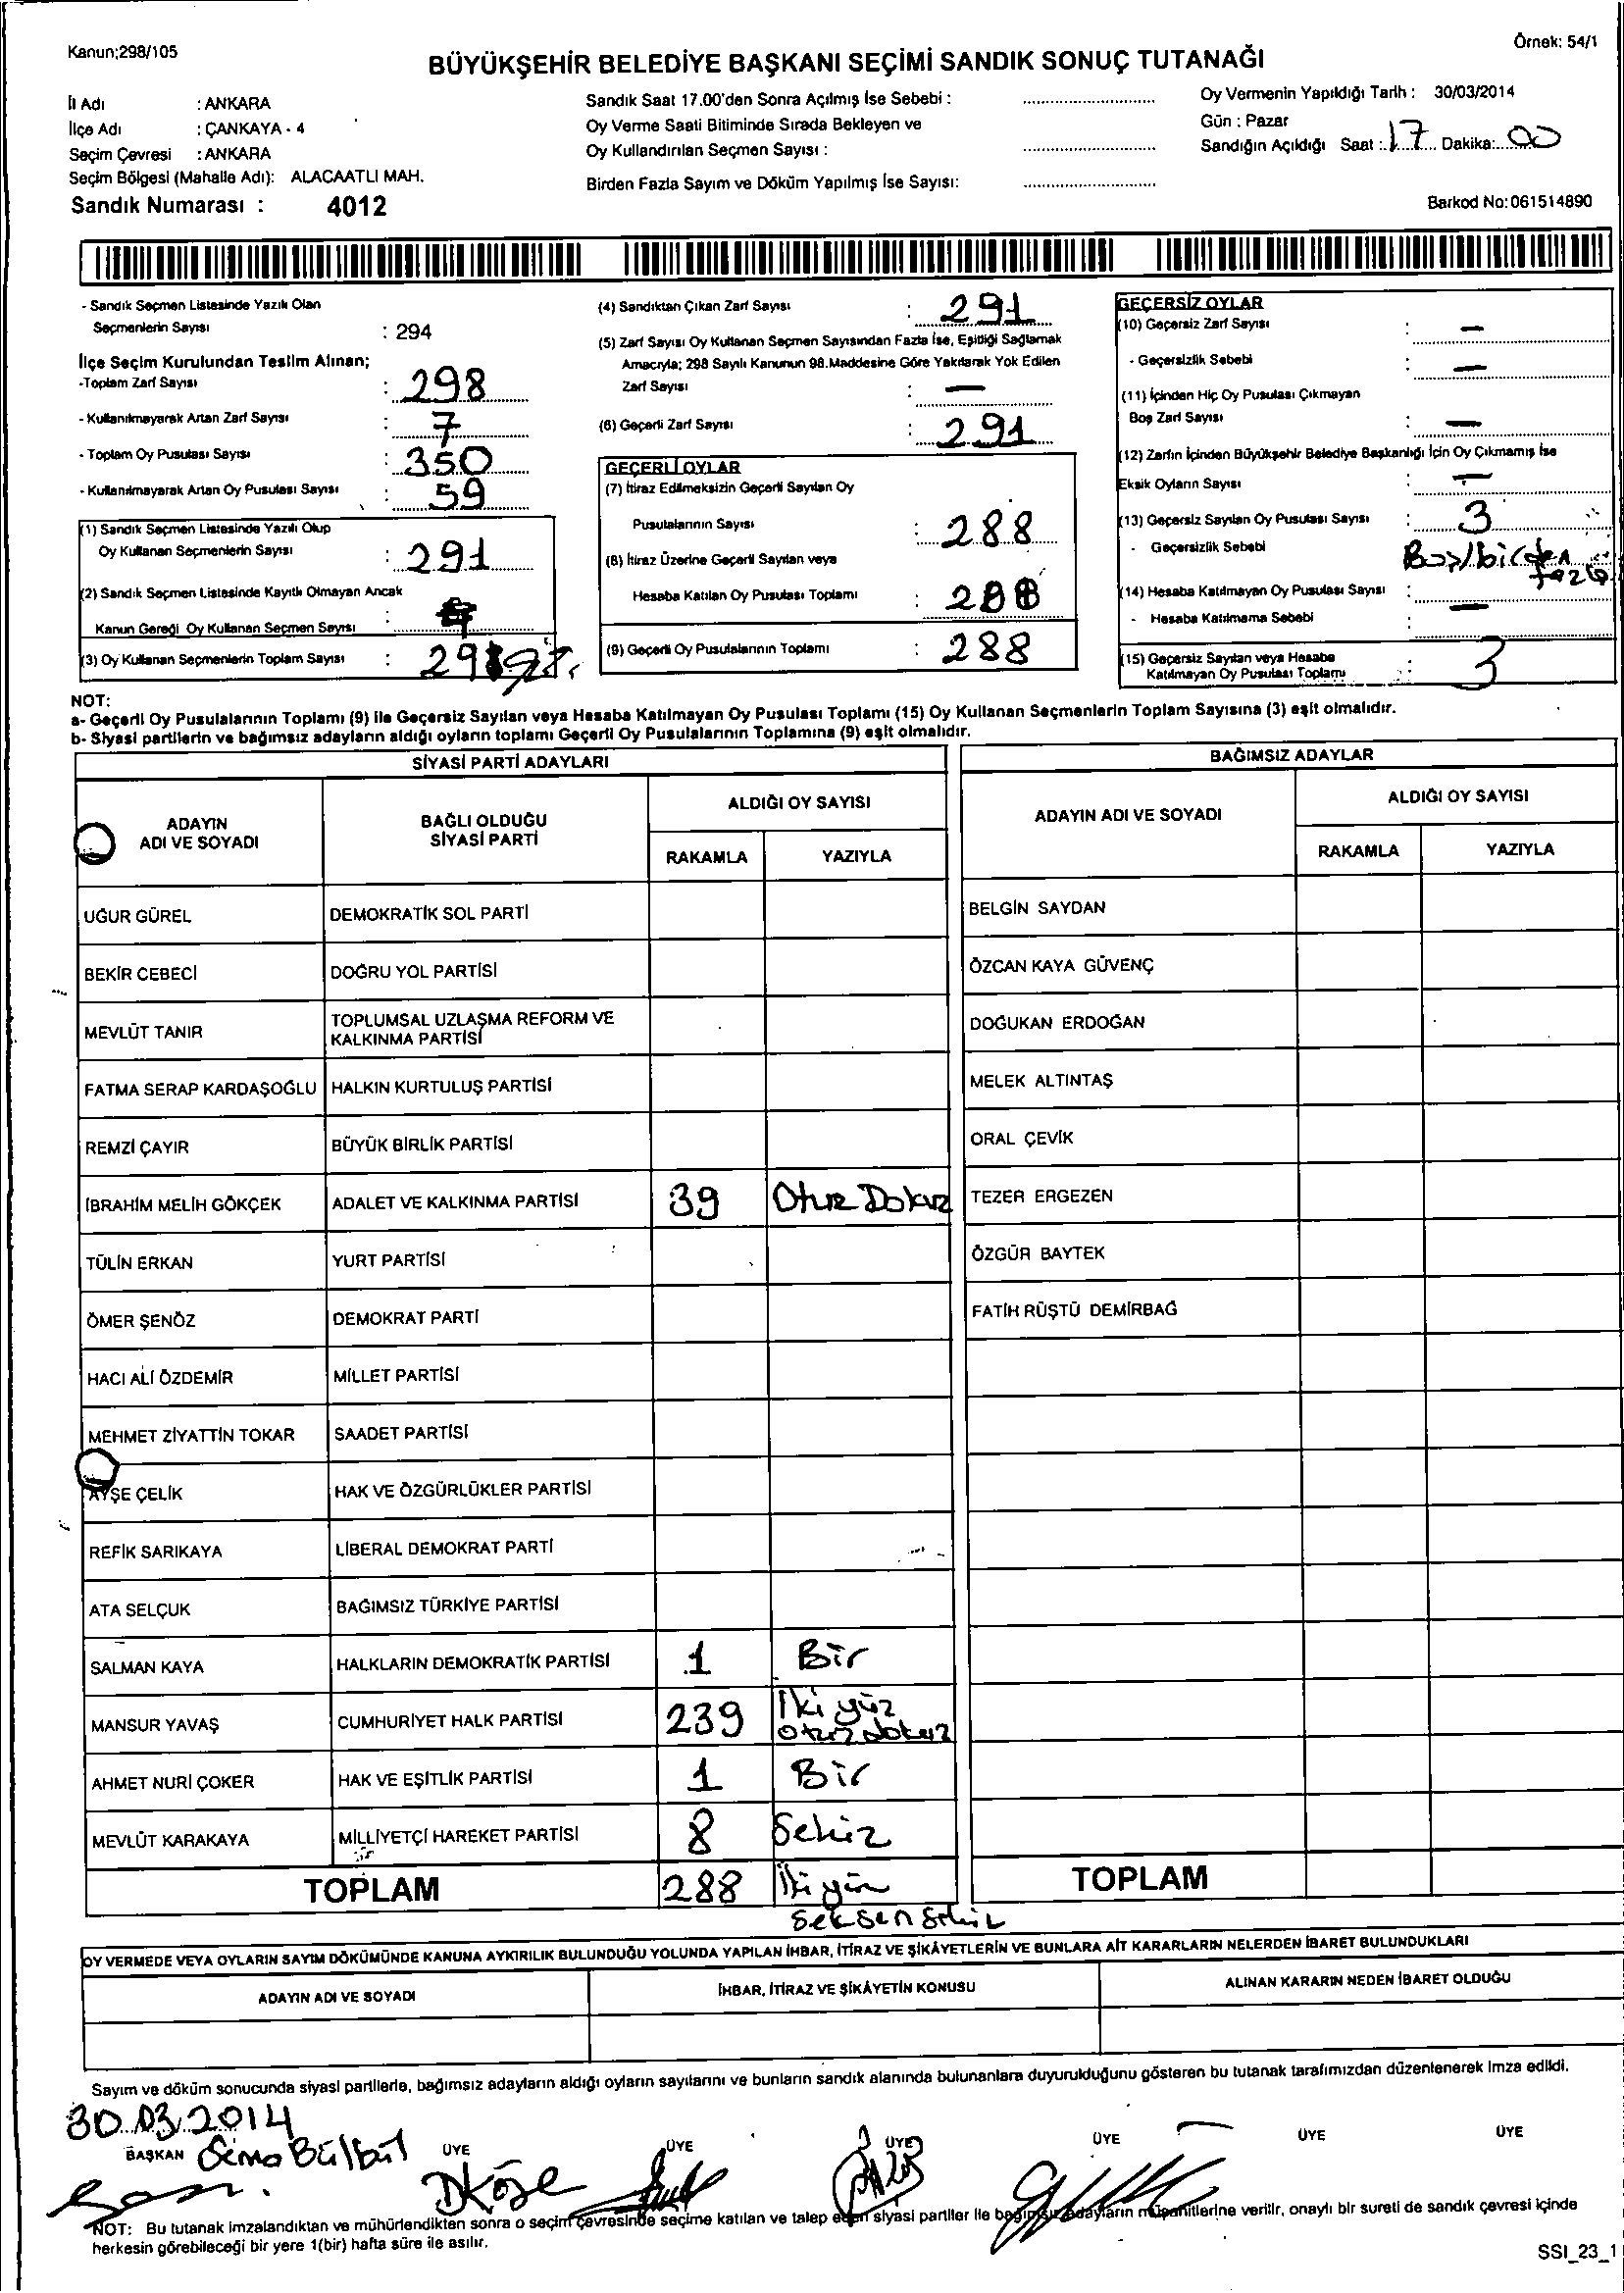 Kanun;298/105
Örnek: 54/1
BÜYÜKŞEHİR BELEDİYE BAŞKANI SEÇİMİ SANDIK SONUÇ TUTANAĞI
İl Adı : ANKARA
İlçe Adı : ÇANKAYA - 4
Seçim Çevresi : ANKARA
Seçim Bölgesi (Mahalle Adı): ALACAATLI MAH.
Sandık Numarası : 4012
Sandık Saat 17.00'den Sonra Açılmış İse Sebebi :
Oy Verme Saati Bitiminde Sırada Bekleyen ve
Oy Kullandırılan Seçmen Sayısı :
Birden Fazla Sayım ve Döküm Yapılmış İse Sayısı:
Oy Vermenin Yapıldığı Tarih : 30/03/2014
Gün : Pazar
Sandığın Açıldığı Saat : 17 Dakika: 00
Barkod No:061514890
- Sandık Seçmen Listesinde Yazılı Olan
Seçmenlerin Sayısı : 294
İlçe Seçim Kurulundan Teslim Alınan;
-Toplam Zarf Sayısı : 298
- Kullanılmayarak Artan Zarf Sayısı : 7
- Toplam Oy Pusulası Sayısı : 350
- Kullanılmayarak Artan Oy Pusulası Sayısı : 59
(1) Sandık Seçmen Listesinde Yazılı Olup
Oy Kullanan Seçmenlerin Sayısı : 291
(2) Sandık Seçmen Listesinde Kayıtlı Olmayan Ancak
Kanun Gereği Oy Kullanan Seçmen Sayısı :
(3) Oy Kullanan Seçmenlerin Toplam Sayısı :
(4) Sandıktan Çıkan Zarf Sayısı : 291
(5) Zarf Sayısı Oy Kullanan Seçmen Sayısından Fazla İse, Eşitliği Sağlamak
Amacıyla; 298 Sayılı Kanunun 98.Maddesine Göre Yakılarak Yok Edilen
Zarf Sayısı : —
(6) Geçerli Zarf Sayısı : 291
GEÇERLİ OYLAR
(7) İtiraz Edilmeksizin Geçerli Sayılan Oy
Pusulalarının Sayısı : 288
(8) İtiraz Üzerine Geçerli Sayılan veya
Hesaba Katılan Oy Pusulası Toplamı : 288
(9) Geçerli Oy Pusulalarının Toplamı : 288
GEÇERSİZ OYLAR
(10) Geçersiz Zarf Sayısı : —
- Geçersizlik Sebebi : —
(11) İçinden Hiç Oy Pusulası Çıkmayan
Boş Zarf Sayısı : —
(12) Zarfın İçinden Büyükşehir Belediye Başkanlığı İçin Oy Çıkmamış İse
Eksik Oyların Sayısı : —
(13) Geçersiz Sayılan Oy Pusulası Sayısı : 3
- Geçersizlik Sebebi Boş/birden
fazla
(14) Hesaba Katılmayan Oy Pusulası Sayısı : —
- Hesaba Katılmama Sebebi :
(15) Geçersiz Sayılan veya Hesaba
Katılmayan Oy Pusulası Toplamı : 3
NOT:
a- Geçerli Oy Pusulalarının Toplamı (9) ile Geçersiz Sayılan veya Hesaba Katılmayan Oy Pusulası Toplamı (15) Oy Kullanan Seçmenlerin Toplam Sayısına (3) eşit olmalıdır.
b- Siyasi partilerin ve bağımsız adayların aldığı oyların toplamı Geçerli Oy Pusulalarının Toplamına (9) eşit olmalıdır.
SİYASİ PARTİ ADAYLARI
ADAYIN
ADI VE SOYADI
BAĞLI OLDUĞU
SİYASİ PARTİ
ALDIĞI OY SAYISI
RAKAMLA YAZIYLA
UĞUR GÜREL DEMOKRATİK SOL PARTİ
BEKİR CEBECİ DOĞRU YOL PARTİSİ
MEVLÜT TANIR TOPLUMSAL UZLAŞMA REFORM VE
KALKINMA PARTİSİ
FATMA SERAP KARDAŞOĞLU HALKIN KURTULUŞ PARTİSİ
REMZİ ÇAYIR BÜYÜK BİRLİK PARTİSİ
İBRAHİM MELİH GÖKÇEK ADALET VE KALKINMA PARTİSİ 39 Otuz Dokuz
TÜLİN ERKAN YURT PARTİSİ
ÖMER ŞENÖZ DEMOKRAT PARTİ
HACI ALİ ÖZDEMİR MİLLET PARTİSİ
MEHMET ZİYATTİN TOKAR SAADET PARTİSİ
AYŞE ÇELİK HAK VE ÖZGÜRLÜKLER PARTİSİ
REFİK SARIKAYA LİBERAL DEMOKRAT PARTİ
ATA SELÇUK BAĞIMSIZ TÜRKİYE PARTİSİ
SALMAN KAYA HALKLARIN DEMOKRATİK PARTİSİ 1 Bir
MANSUR YAVAŞ CUMHURİYET HALK PARTİSİ 239 İki yüz
otuz dokuz
AHMET NURİ ÇOKER HAK VE EŞİTLİK PARTİSİ 1 Bir
MEVLÜT KARAKAYA MİLLİYETÇİ HAREKET PARTİSİ 8 Sekiz
TOPLAM 288 İki yüz
seksen sekiz
BAĞIMSIZ ADAYLAR
ADAYIN ADI VE SOYADI
ALDIĞI OY SAYISI
RAKAMLA YAZIYLA
BELGİN SAYDAN
ÖZCAN KAYA GÜVENÇ
DOĞUKAN ERDOĞAN
MELEK ALTINTAŞ
ORAL ÇEVİK
TEZER ERGEZEN
ÖZGÜR BAYTEK
FATİH RÜŞTÜ DEMİRBAĞ
TOPLAM
OY VERMEDE VEYA OYLARIN SAYIM DÖKÜMÜNDE KANUNA AYKIRILIK BULUNDUĞU YOLUNDA YAPILAN İHBAR, İTİRAZ VE ŞİKÂYETLERİN VE BUNLARA AİT KARARLARIN NELERDEN İBARET BULUNDUKLARI
ADAYIN ADI VE SOYADI
İHBAR, İTİRAZ VE ŞİKÂYETİN KONUSU
ALINAN KARARIN NEDEN İBARET OLDUĞU
Sayım ve döküm sonucunda siyasi partilerle, bağımsız adayların aldığı oyların sayılarını ve bunların sandık alanında bulunanlara duyurulduğunu gösteren bu tutanak tarafımızdan düzenlenerek imza edildi.
30.03.2014
BAŞKAN Sema Bülbül ÜYE ÜYE ÜYE ÜYE ÜYE ÜYE
DKöse
NOT: Bu tutanak imzalandıktan ve mühürlendikten sonra o seçim çevresinde seçime katılan ve talep eden siyasi partiler ile bağımsız adayların müşahitlerine verilir, onaylı bir sureti de sandık çevresi içinde
herkesin görebileceği bir yere 1(bir) hafta süre ile asılır.
SSI_23_1